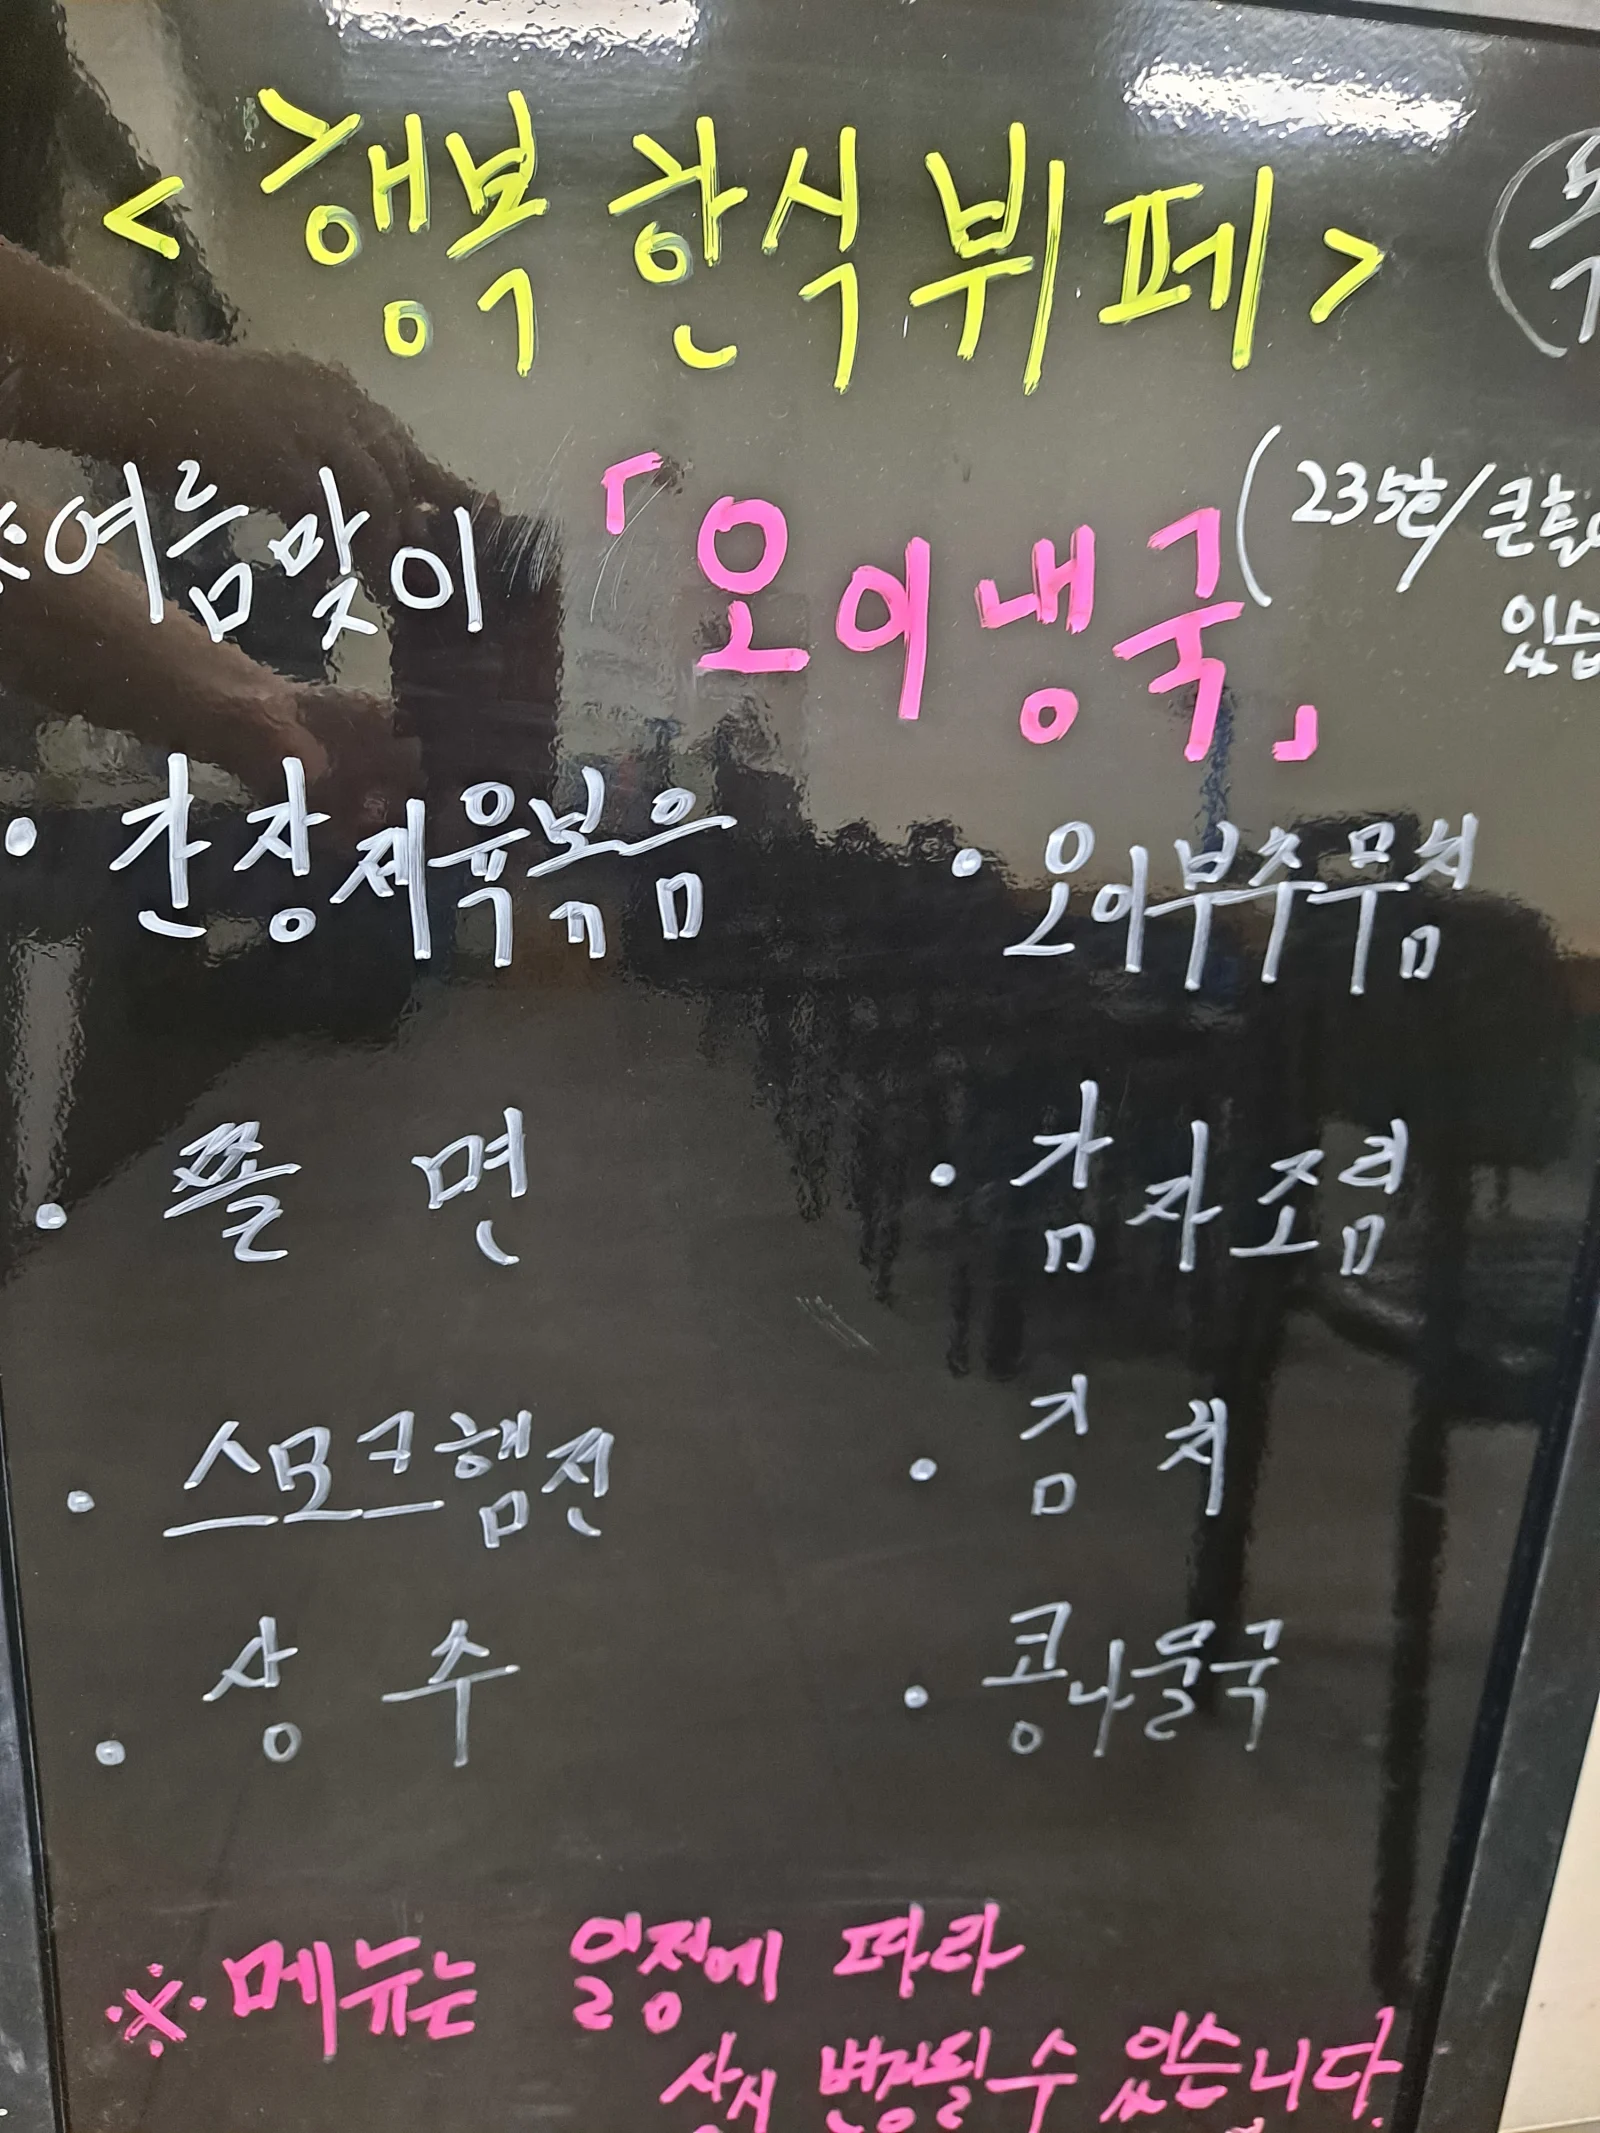 <행복 한식 뷔페>
※여름맞이 「오이냉국」 (235호/큰홀
있습
• 간장제육볶음
• 오이부추무침
• 쫄 면
• 감자조림
• 스모크햄전
• 김 치
• 상 추
• 콩나물국
※메뉴는 일정에 따라
상시 변경될 수 있습니다.